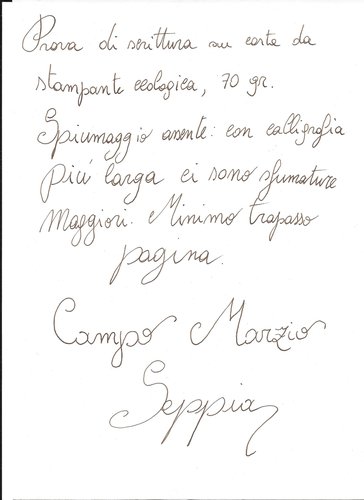 Prova di scrittura su carta da
stampante ecologica, 70 gr.
Spiumaggio assente: con calligrafia
più larga ci sono sfumature
maggiori. Minimo trapasso
pagina.
Campo Marzio
Seppia